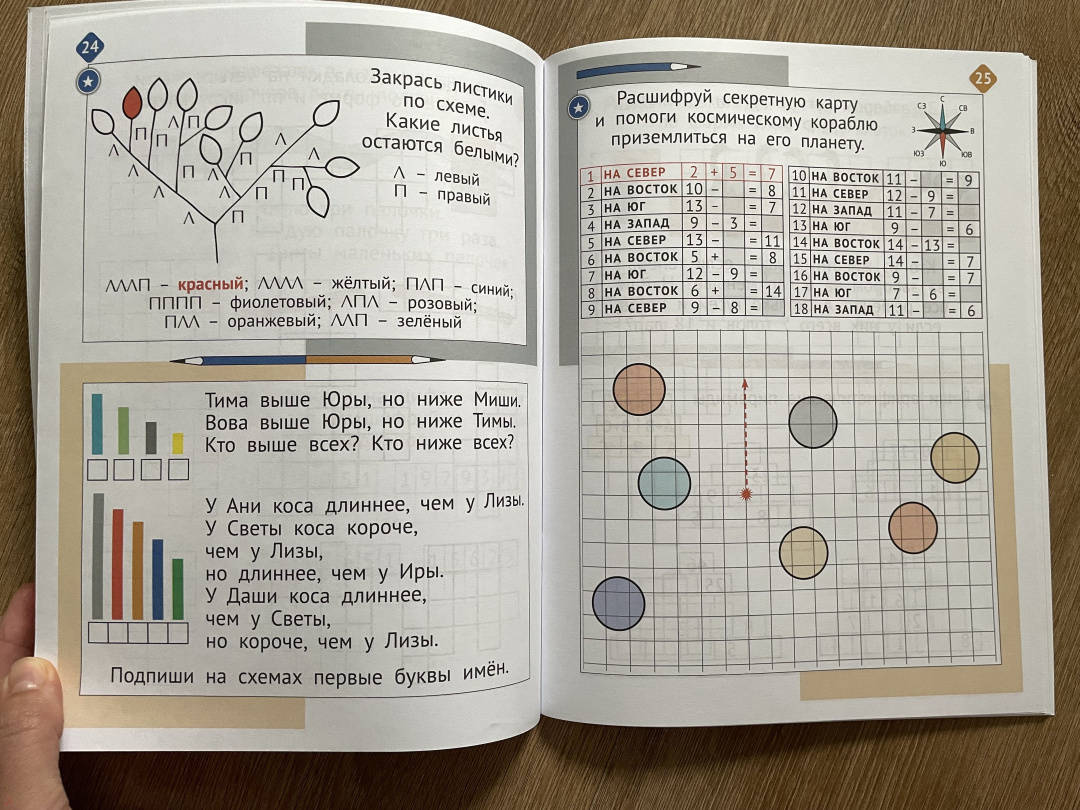 24
Закрась листики
по схеме.
Какие листья
остаются белыми?
Л – левый
П – правый
Л П Л П Л Л
Л П П П П
Л П Л П
Л П
ЛЛЛП – красный; ЛЛЛЛ – жёлтый; ПЛП – синий;
ПППП – фиолетовый; ЛПЛ – розовый;
ПЛЛ – оранжевый; ЛЛП – зелёный
Тима выше Юры, но ниже Миши.
Вова выше Юры, но ниже Тимы.
Кто выше всех? Кто ниже всех?
У Ани коса длиннее, чем у Лизы.
У Светы коса короче,
чем у Лизы,
но длиннее, чем у Иры.
У Даши коса длиннее,
чем у Светы,
но короче, чем у Лизы.
Подпиши на схемах первые буквы имён.
25
Расшифруй секретную карту
и помоги космическому кораблю
приземлиться на его планету.
С
СЗ СВ
З В
ЮЗ ЮВ
Ю
1 НА СЕВЕР 2 + 5 = 7
2 НА ВОСТОК 10 – = 8
3 НА ЮГ 13 – = 7
4 НА ЗАПАД 9 – 3 =
5 НА СЕВЕР 13 – = 11
6 НА ВОСТОК 5 + = 8
7 НА ЮГ 12 – 9 =
8 НА ВОСТОК 6 + = 14
9 НА СЕВЕР 9 – 8 =
10 НА ВОСТОК 11 – = 9
11 НА СЕВЕР 12 – 9 =
12 НА ЗАПАД 11 – 7 =
13 НА ЮГ 9 – = 6
14 НА ВОСТОК 14 – 13 =
15 НА СЕВЕР 14 – = 7
16 НА ВОСТОК 9 – = 7
17 НА ЮГ 7 – 6 =
18 НА ЗАПАД 11 – = 6